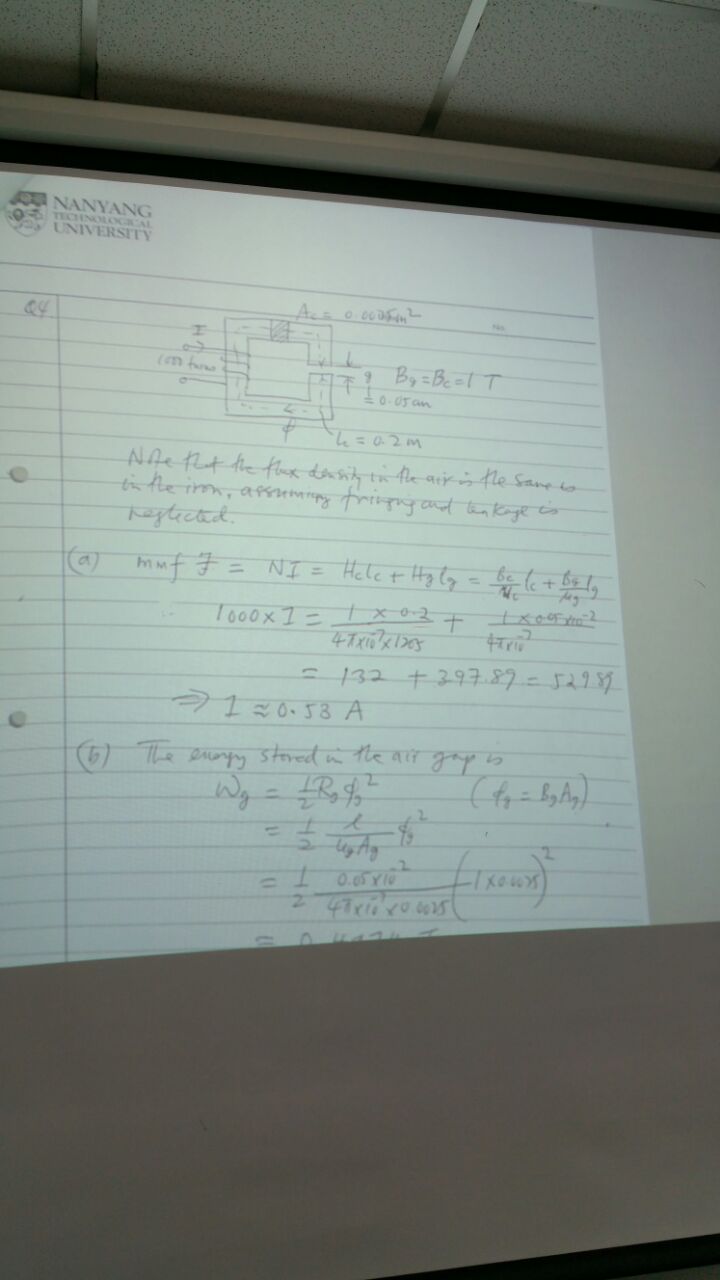 NANYANG
TECHNOLOGICAL
UNIVERSITY
Q4
Ac = 0.0025m²
No.
I
1000 turns
g Bg = Bc = 1 T
= 0.05cm
φ
lc = 0.2 m
Note that the flux density in the air is the same as
in the iron, assuming fringing and leakage is
neglected.
(a) mmf F = NI = Hclc + Hglg = Bc/μc lc + Bg/μg lg
∴ 1000 x I = 1 x 0.2 / 4π x 10⁻⁷ x 1205 + 1 x 0.05 x 10⁻² / 4π x 10⁻⁷
= 132 + 397.89 = 529.89
⇒ I ≈ 0.53 A
(b) The energy stored in the air gap is
Wg = 1/2 Rg φg² (φg = Bg Ag)
= 1/2 l/μg Ag φg²
= 1/2 0.05 x 10⁻² / 4π x 10⁻⁷ x 0.0025 (1 x 0.0025)²